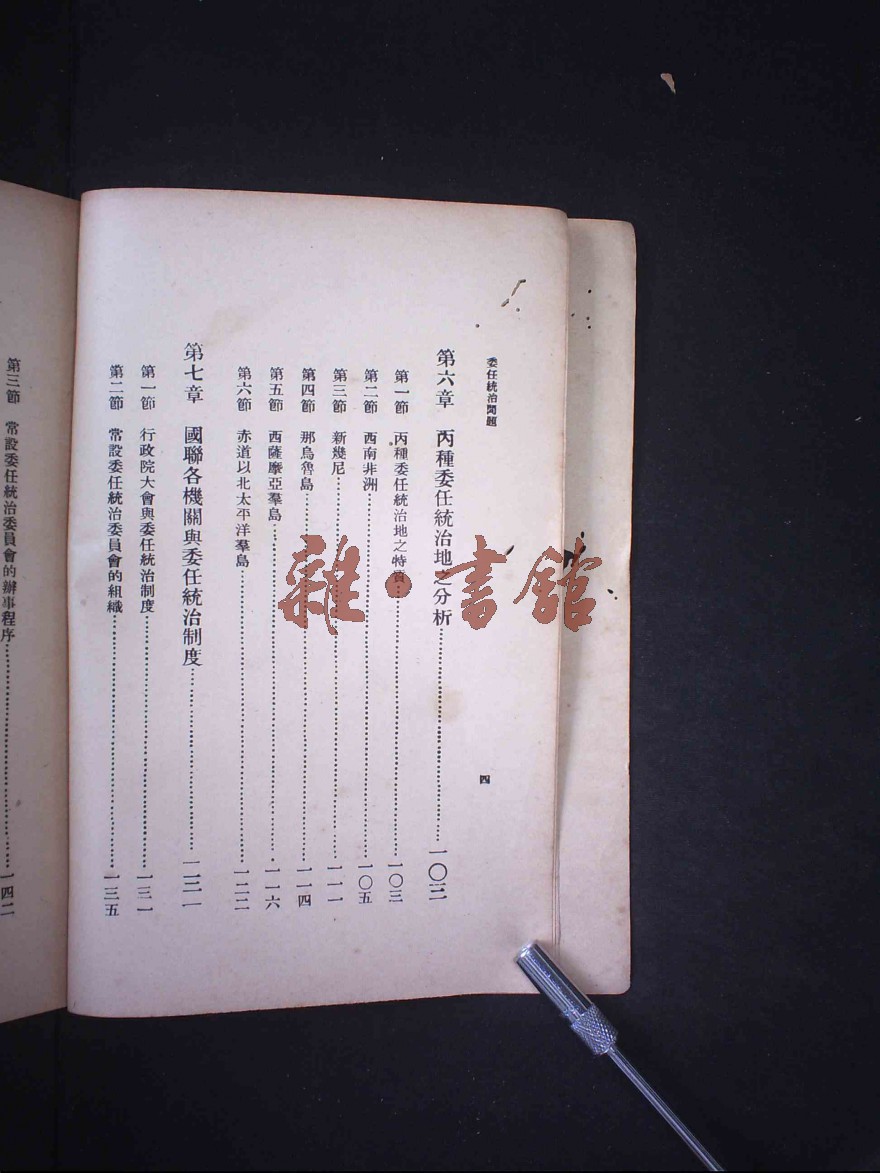 委任統治問題
四
第六章 丙種委任統治地之分析…………一〇三
第一節 丙種委任統治地之特質…………一〇三
第二節 西南非洲…………一〇五
第三節 新幾尼…………一一一
第四節 那烏魯島…………一一四
第五節 西薩摩亞羣島…………一一六
第六節 赤道以北太平洋羣島…………一二二
第七章 國聯各機關與委任統治制度…………一三一
第一節 行政院大會與委任統治制度…………一三一
第二節 常設委任統治委員會的組織…………一三五
第三節 常設委任統治委員會的辦事程序…………一四二
雜·書館